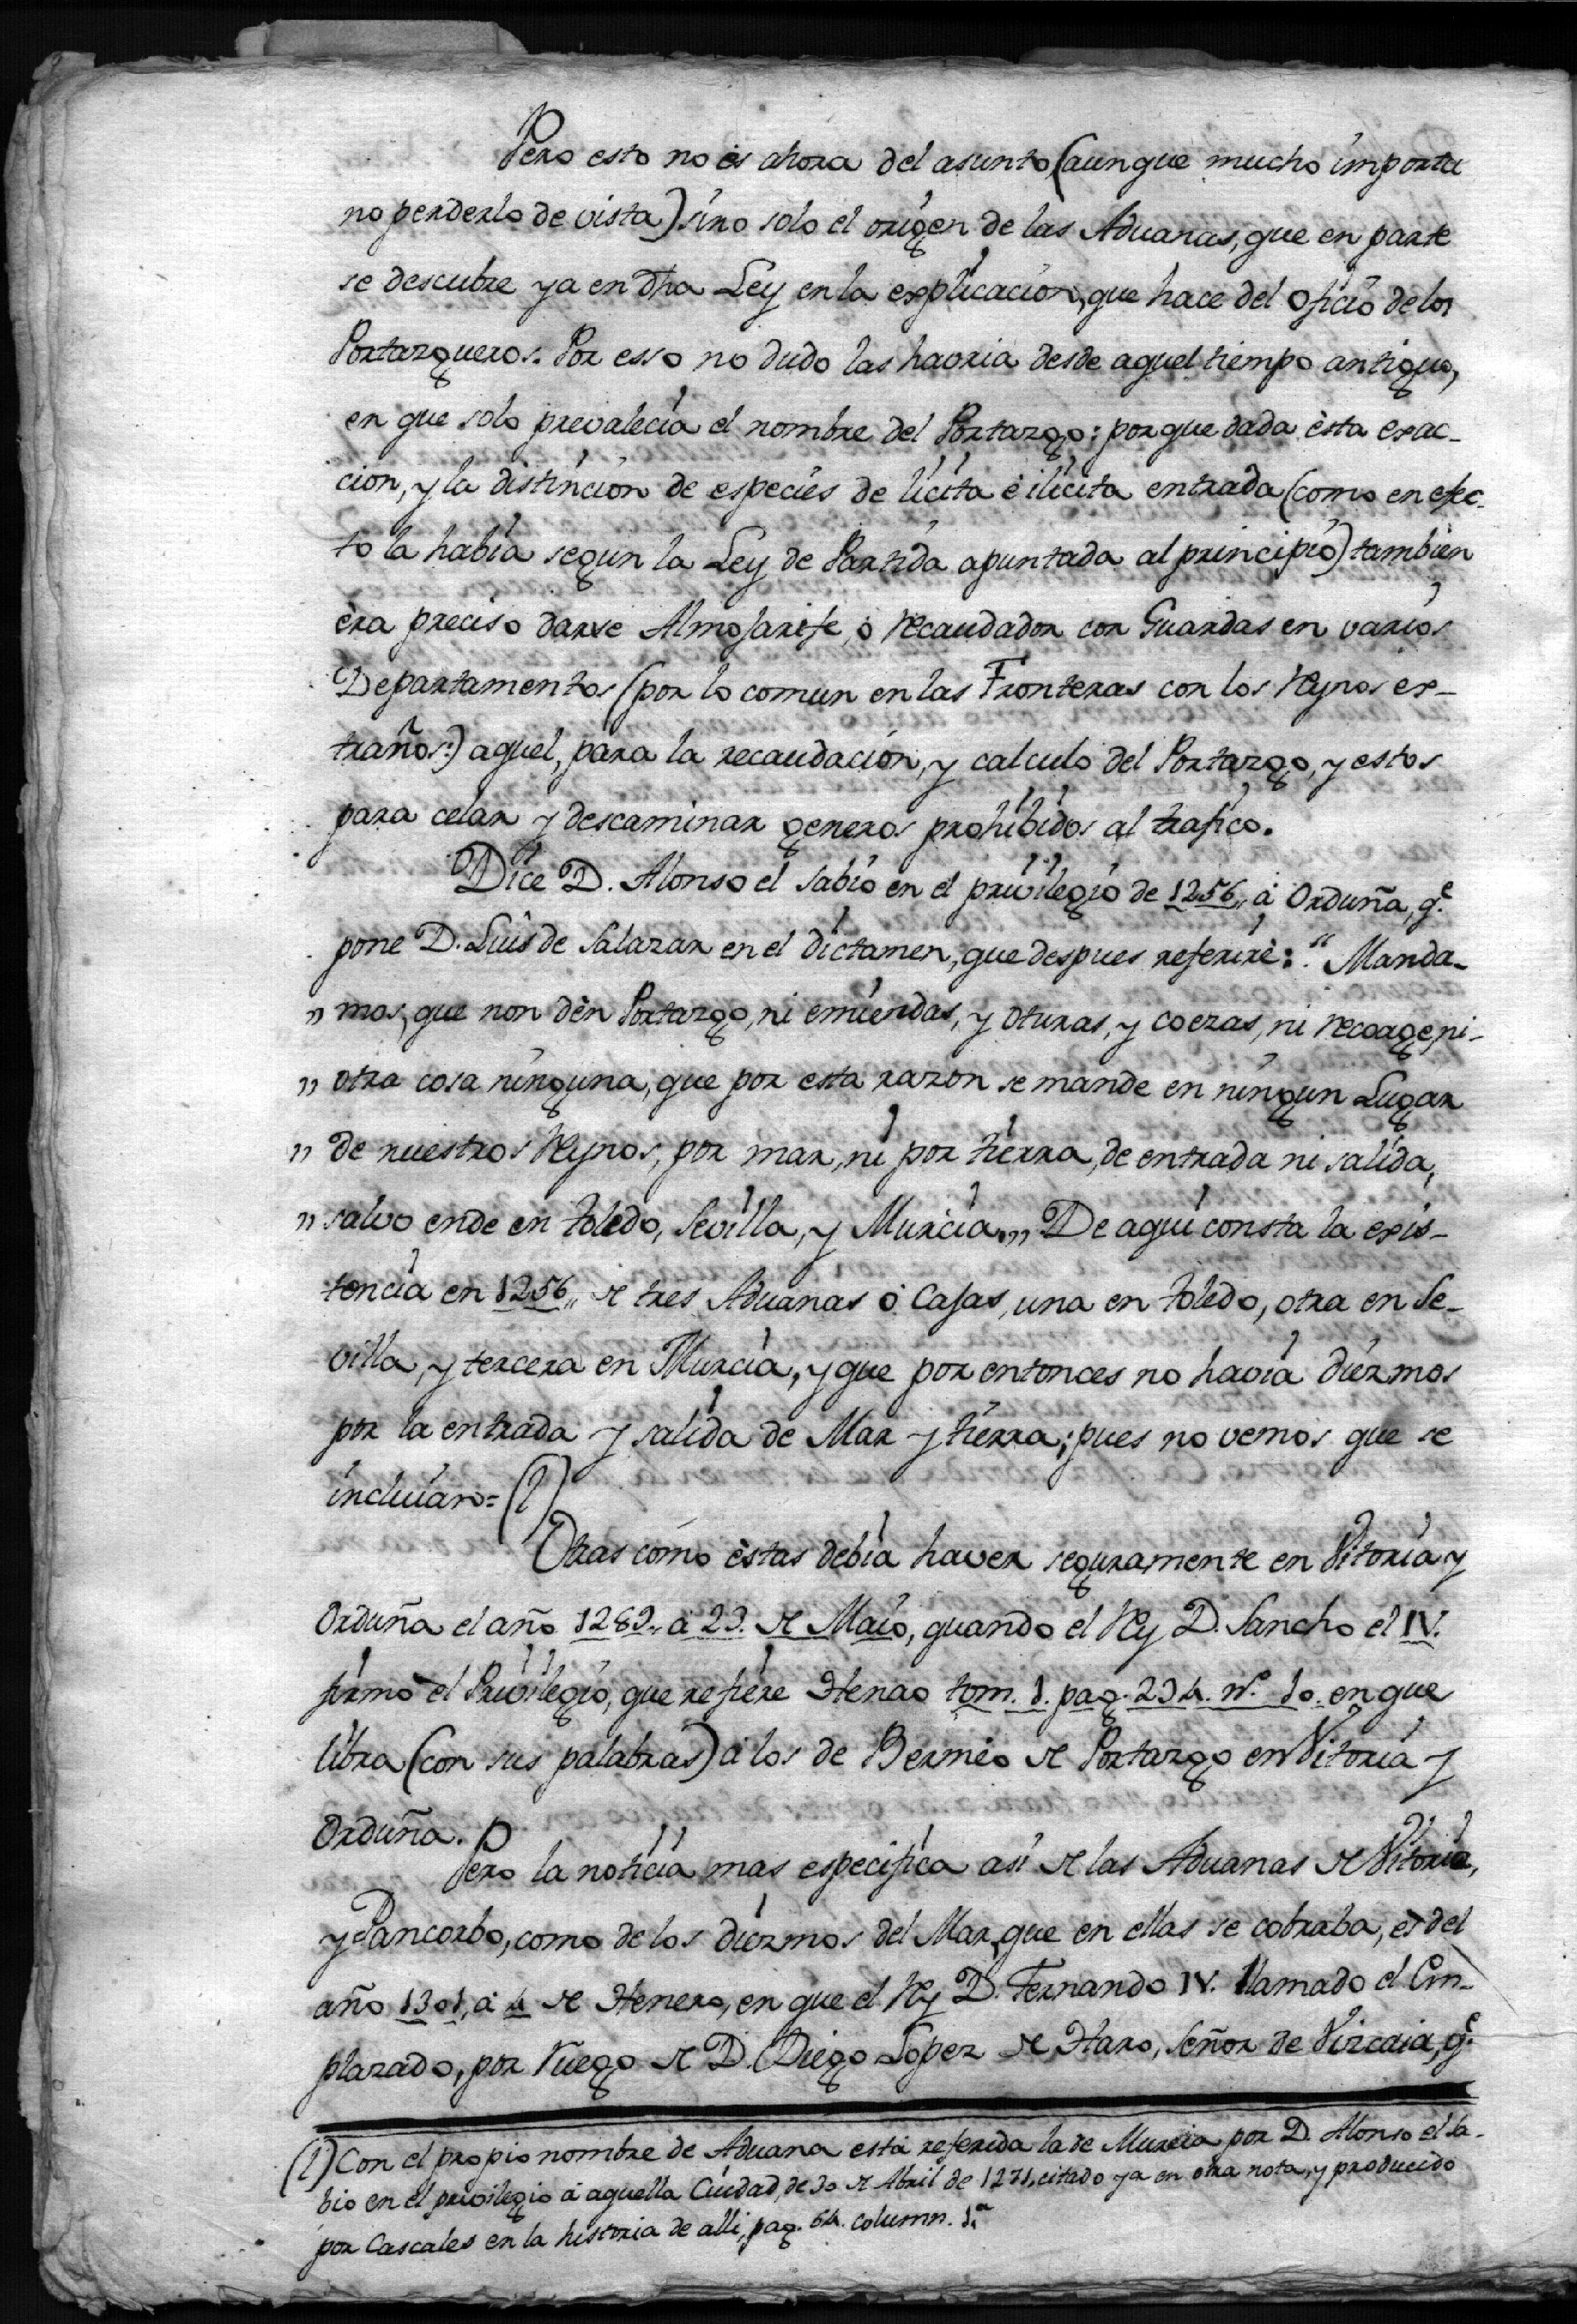 Pero esto no és ahora del asunto (aunque mucho importa
no perderlo de vista) sino solo el origen de las Aduanas, que en parte
se descubre ya en dha Ley en la explicacion, que hace del oficio de los
Portazgueros. Por esso no dudo las havria desde aquel tiempo antiguo,
en que solo prevalecia el nombre del Portazgo: porque dada ésta exac-
cion, y la distincion de especies de licita é ilicita entrada (como en efec-
to la habia segun la Ley de Partida apuntada al principio) tambien
éra preciso darse Almojarife, ó Recaudador con Guardas en varios
Departamentos (por lo comun en las Fronteras con los Reynos ex-
traños:) aquel, para la recaudacion, y calculo del Portazgo, y estos
para celar y descaminar generos prohibidos al trafico.
Dice D. Alonso el Sabio en el privilegio de 1256,, á Orduña, q.e
pone D. Luis de Salazar en el dictamen, que despues referiré: “ Manda-
,, mos, que non dén Portazgo, ni emiendas, y oturas, y coezas, ni Recoage, ni-
,, otra cosa ninguna, que por esta razon se mande en ningun Lugar
,, de nuestros Reynos, por mar, ni por tierra, de entrada ni salida,
,, salvo ende en Toledo, Sevilla, y Murcia.,, De aqui consta la exis-
tencia en 1256,, de tres Aduanas ó Casas, una en Toledo, otra en Se-
villa, y tercera en Murcia, y que por entonces no havia diezmos
por la entrada y salida de Mar y tierra; pues no vemos que se
incluian= (1)
Otras como éstas debia haver seguramente en Vitoria y
Orduña el año 1282. á 23. de Maio, quando el Rey D. Sancho el IV.
firmó el Privilegio, que refiere Henao tom. 1. pag. 234. n.o 10. en que
libra (con sus palabras) á los de Bermeo de Portazgo en Vitoria y
Orduña.
Pero la noticia mas especifica asi de las Aduanas de Vitoria,
y Pancorbo, como de los diezmos del Mar, que en ellas se cobraba, es del
año 1301, á 4 de Henero, en que el Rey D. Fernando IV. llamado el Em-
plazado, por Ruego de D. Diego Lopez de Haro, Señor de Vizcaia, q.e
(1) Con el propio nombre de Aduana está referida la de Murcia por D. Alonso el Sa-
bio en el privilegio á aquella Ciudad, de 30 de Abril de 1271, citado ya en otra nota, y producido
por Cascales en la historia de alli, pag. 64. column. 1.a